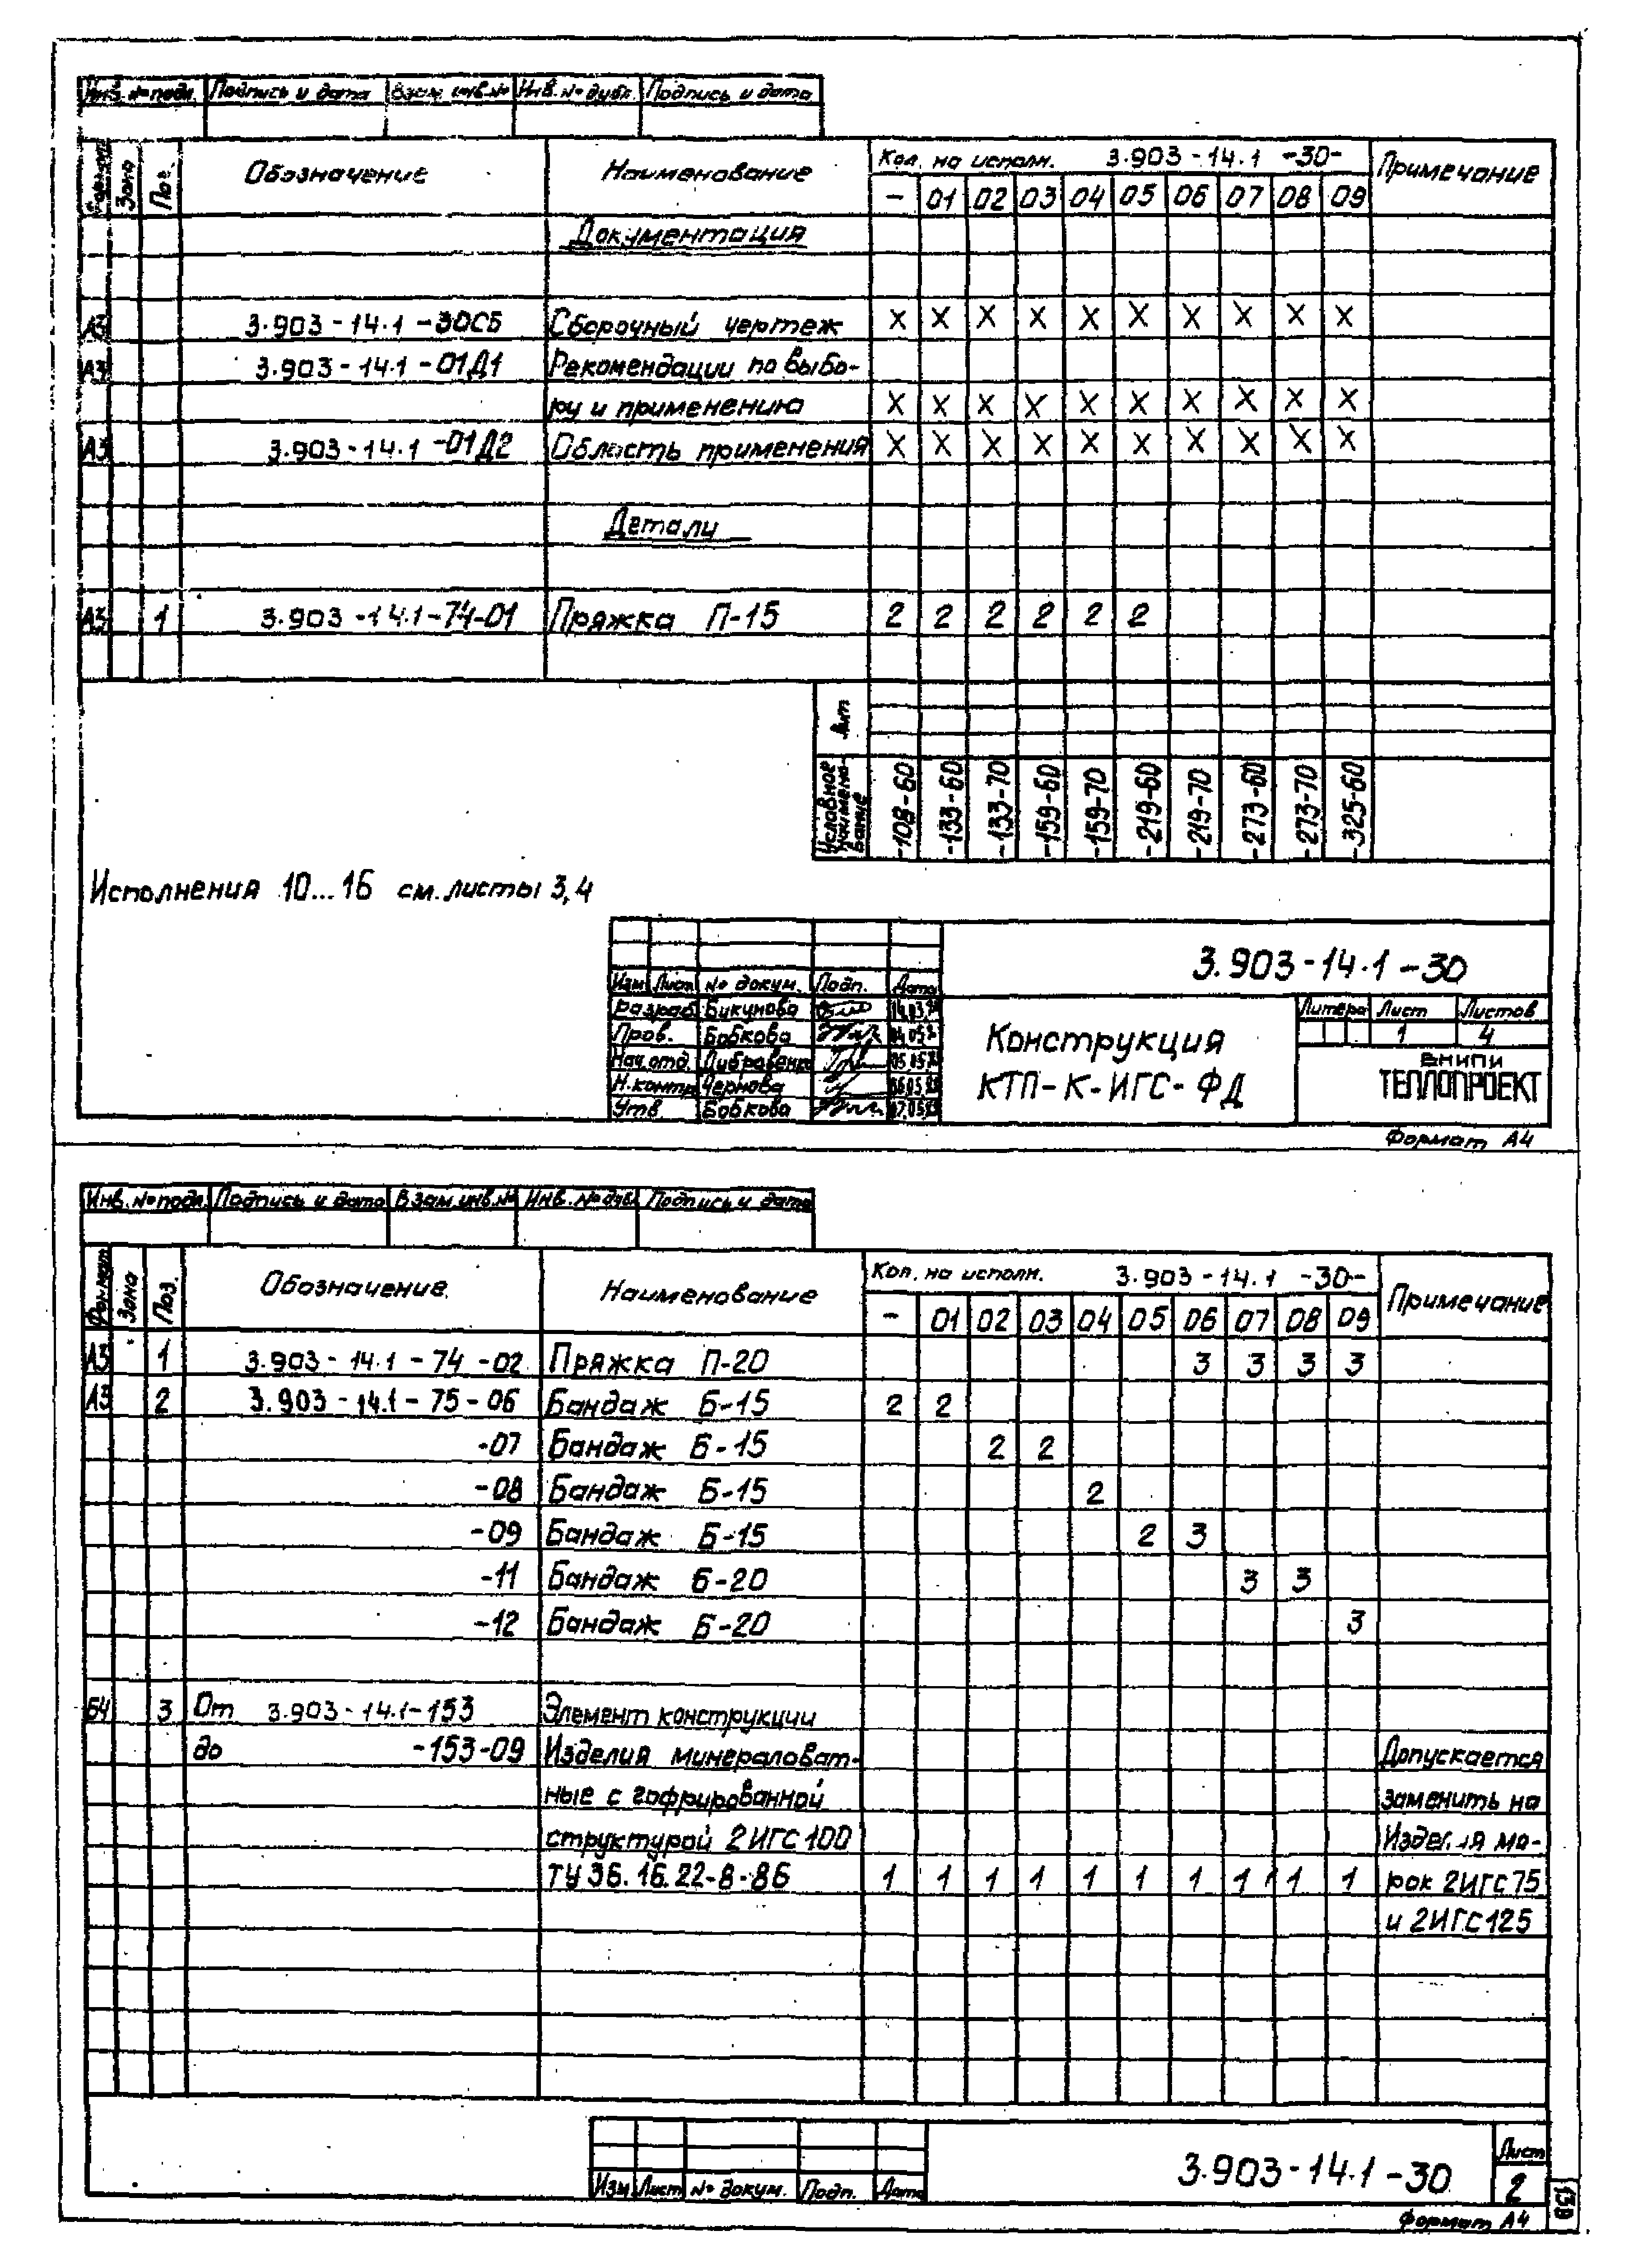 Инв. № подл. Подпись и дата Взам. инв. № Инв. № дубл. Подпись и дата
Формат Зона Поз. Обозначение Наименование Кол. на исполн. 3.903-14.1 -30- Примечание
- 01 02 03 04 05 06 07 08 09
Документация
А3 3.903-14.1-30СБ Сборочный чертеж X X X X X X X X X X
А3 3.903-14.1-01Д1 Рекомендации по выбо-
ру и применению X X X X X X X X X X
А3 3.903-14.1-01Д2 Область применения X X X X X X X X X X
Детали
А3 1 3.903-14.1-74-01 Пряжка П-15 2 2 2 2 2 2
Лит
Условное наименование -108-60 -133-60 -133-70 -159-60 -159-70 -219-60 -219-70 -273-60 -273-70 -325-60
Исполнения 10...16 см. листы 3,4
3.903-14.1-30
Изм Лист № докум. Подп. Дата
Разраб Бикунова
Пров. Бобкова
Нач. отд.
Н. контр Чернова
Утв. Бобкова
Конструкция
КТП-К-ИГС-ФД
Литера Лист Листов
1 4
ВНИПИ
ТЕПЛОПРОЕКТ
Формат А4
Инв. № подл. Подпись и дата Взам. инв. № Инв. № дубл. Подпись и дата
Формат Зона Поз. Обозначение Наименование Кол. на исполн. 3.903-14.1 -30- Примечание
- 01 02 03 04 05 06 07 08 09
А3 1 3.903-14.1-74-02 Пряжка П-20 3 3 3 3
А3 2 3.903-14.1-75-06 Бандаж Б-15 2 2
-07 Бандаж Б-15 2 2
-08 Бандаж Б-15 2
-09 Бандаж Б-15 2 3
-11 Бандаж Б-20 3 3
-12 Бандаж Б-20 3
Б4 3 От 3.903-14.1-153 Элемент конструкции
до -153-09 Изделия минераловат- Допускается
ные с гофрированной заменить на
структурой 2ИГС100 Изделия ма-
ТУ 36.16.22-8-86 1 1 1 1 1 1 1 1 1 1 рок 2ИГС75
и 2ИГС125
Изм Лист № докум. Подп. Дата
3.903-14.1-30
Лист
2
Формат А4